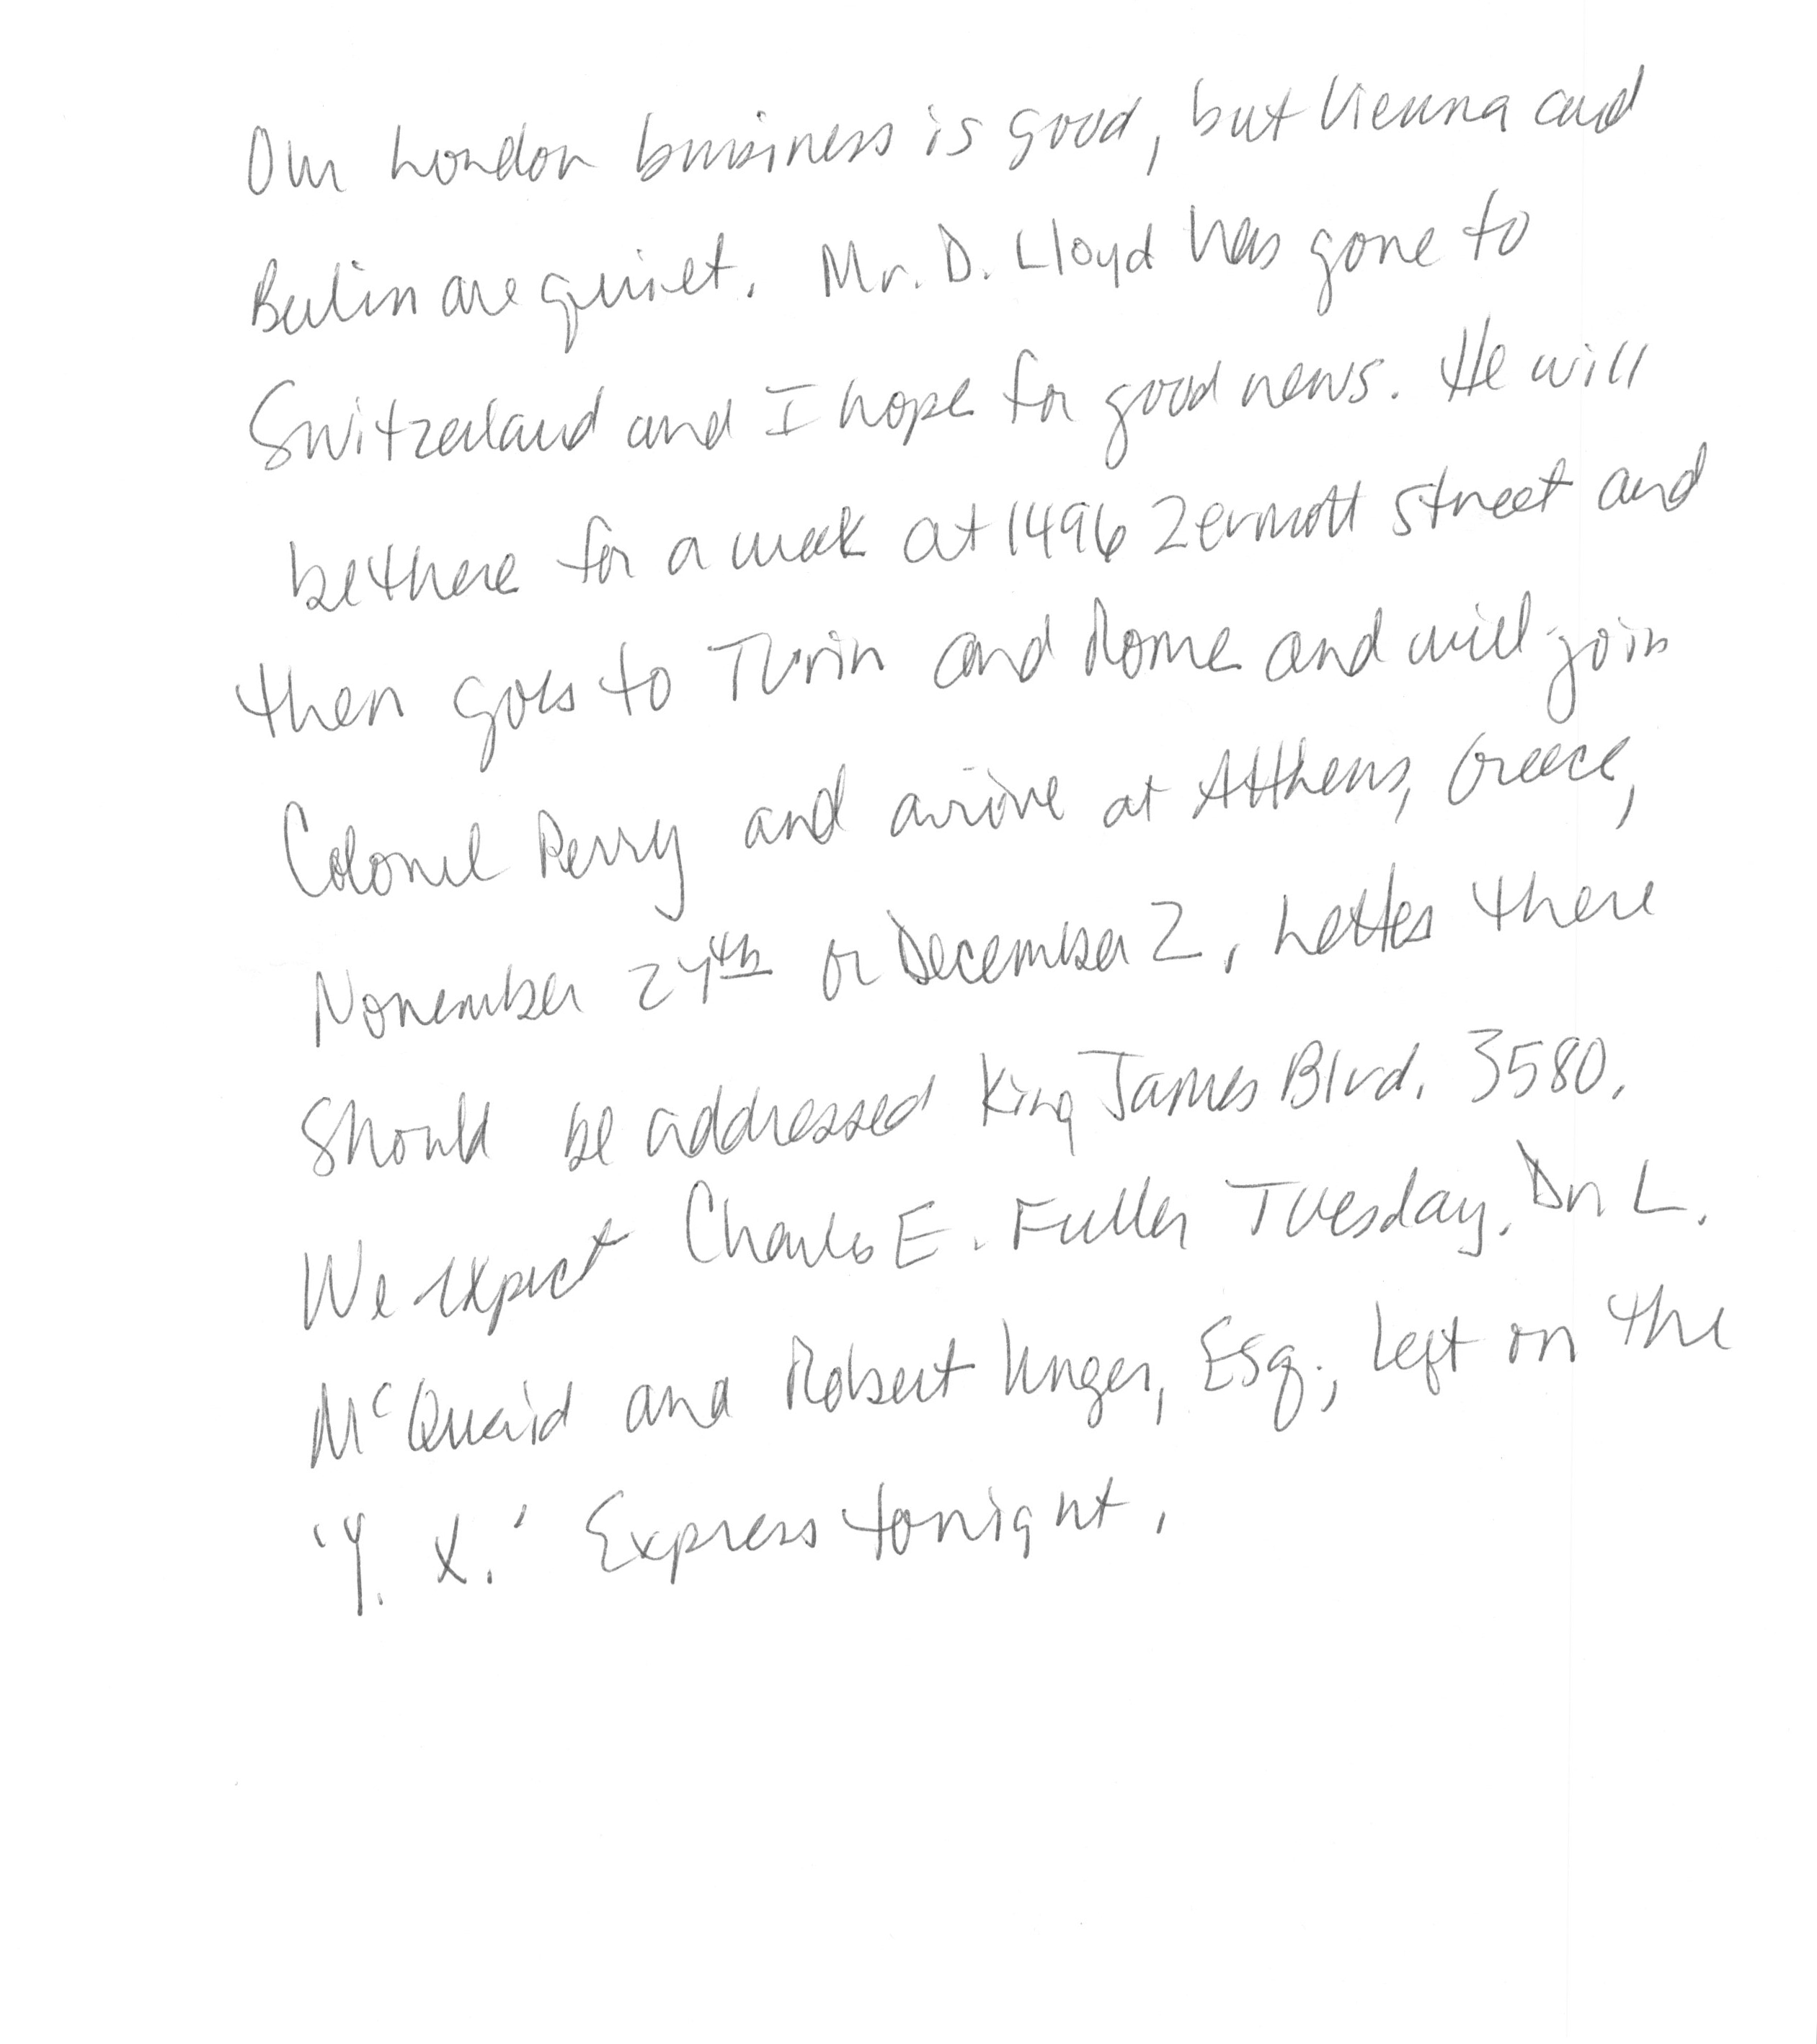 Our London business is good, but Vienna and
Berlin are quiet. Mr. D. Lloyd has gone to
Switzerland and I hope for good news. He will
be there for a week at 1496 Zermott Street and
then goes to Turin and Rome and will join
Colonel Perry and arrive at Athens, Greece,
November 27th or December 2. Letters there
should be addressed King James Blvd. 3580.
We expect Charles E. Fuller Tuesday. Dr L.
McQuaid and Robert Unger, Esq., left on the
'Y. X.' Express tonight.